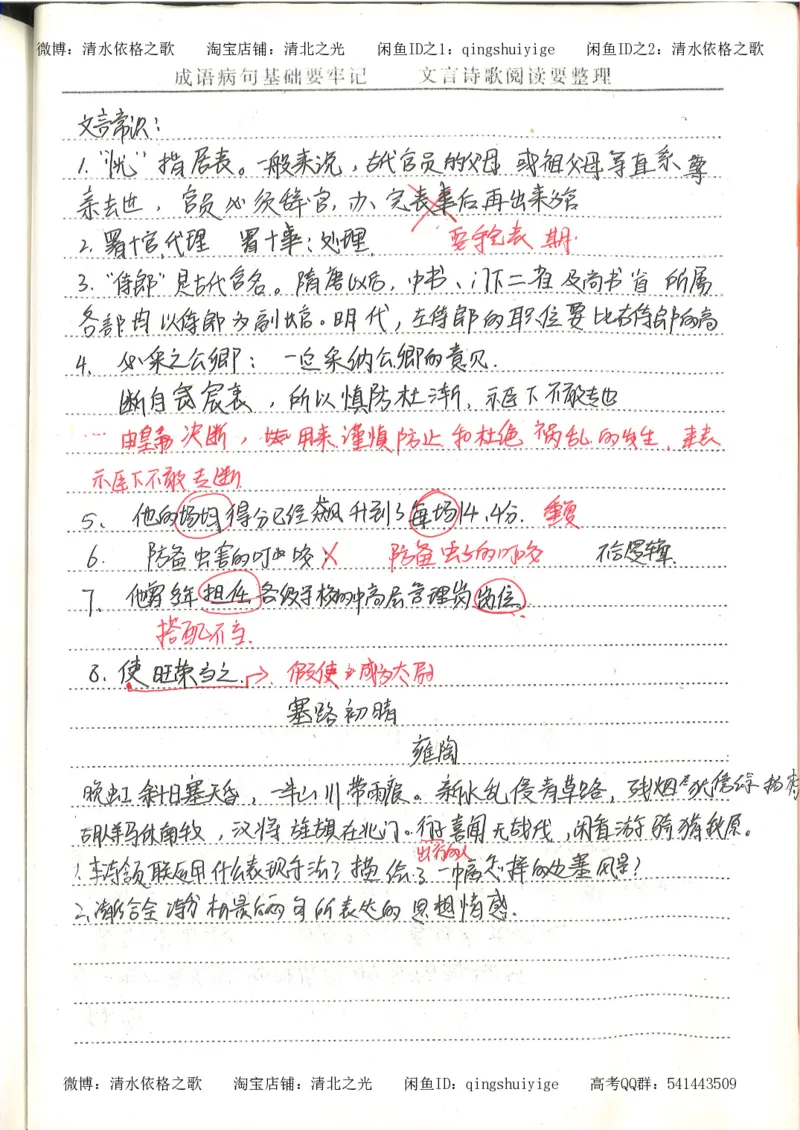 微博：清水依格之歌 淘宝店铺：清北之光 闲鱼ID之1：qingshuiyige 闲鱼ID之2：清水依格之歌
成语病句基础要牢记 文言诗歌阅读要整理
文言常识：
1. "忧" 指居丧。一般来说，古代官员的父母 或祖父母等直系尊
亲去世，官员必须辞官，办完丧事后再出来为官
2. 署+官，代理 署+事：处理 要守完丧期
3. "侍郎"是古代官名。隋唐以后，中书、门下二省及尚书省所属
各部均以侍郎为副官。明代，左侍郎的职位要比右侍郎的高
4. 必采之公卿： 一定采纳公卿的意见.
断自宸衷，所以慎防杜渐，示臣下不敢专也
由皇帝决断，是用来谨慎防止和杜绝祸乱的发生，来表
示臣下不敢专断
5、他的场均得分已经飙升到了每场14.4分. 重复
6. 防备虫害的叮咬X 防备虫子的叮咬 不合逻辑.
7、他曾多年担任各级学校的中高层管理岗岗位。
搭配不当.
8. 使旺荣当之. 假使 成为太尉
塞路初晴
雍陶
晚虹斜日塞天昏，一半山川带雨痕。新水乱侵青草路，残烟犹傍绿杨村
胡人羊马休南牧，汉将旌旗在北门。行子喜闻无战伐，闲看游骑猎秋原。
出行的人
1.首颔联运用什么表现手法？描绘了一幅怎样的边塞风景？
2、请结合全诗分析最后两句所表达的思想情感.
微博：清水依格之歌 淘宝店铺：清北之光 闲鱼ID：qingshuiyige 高考QQ群：541443509